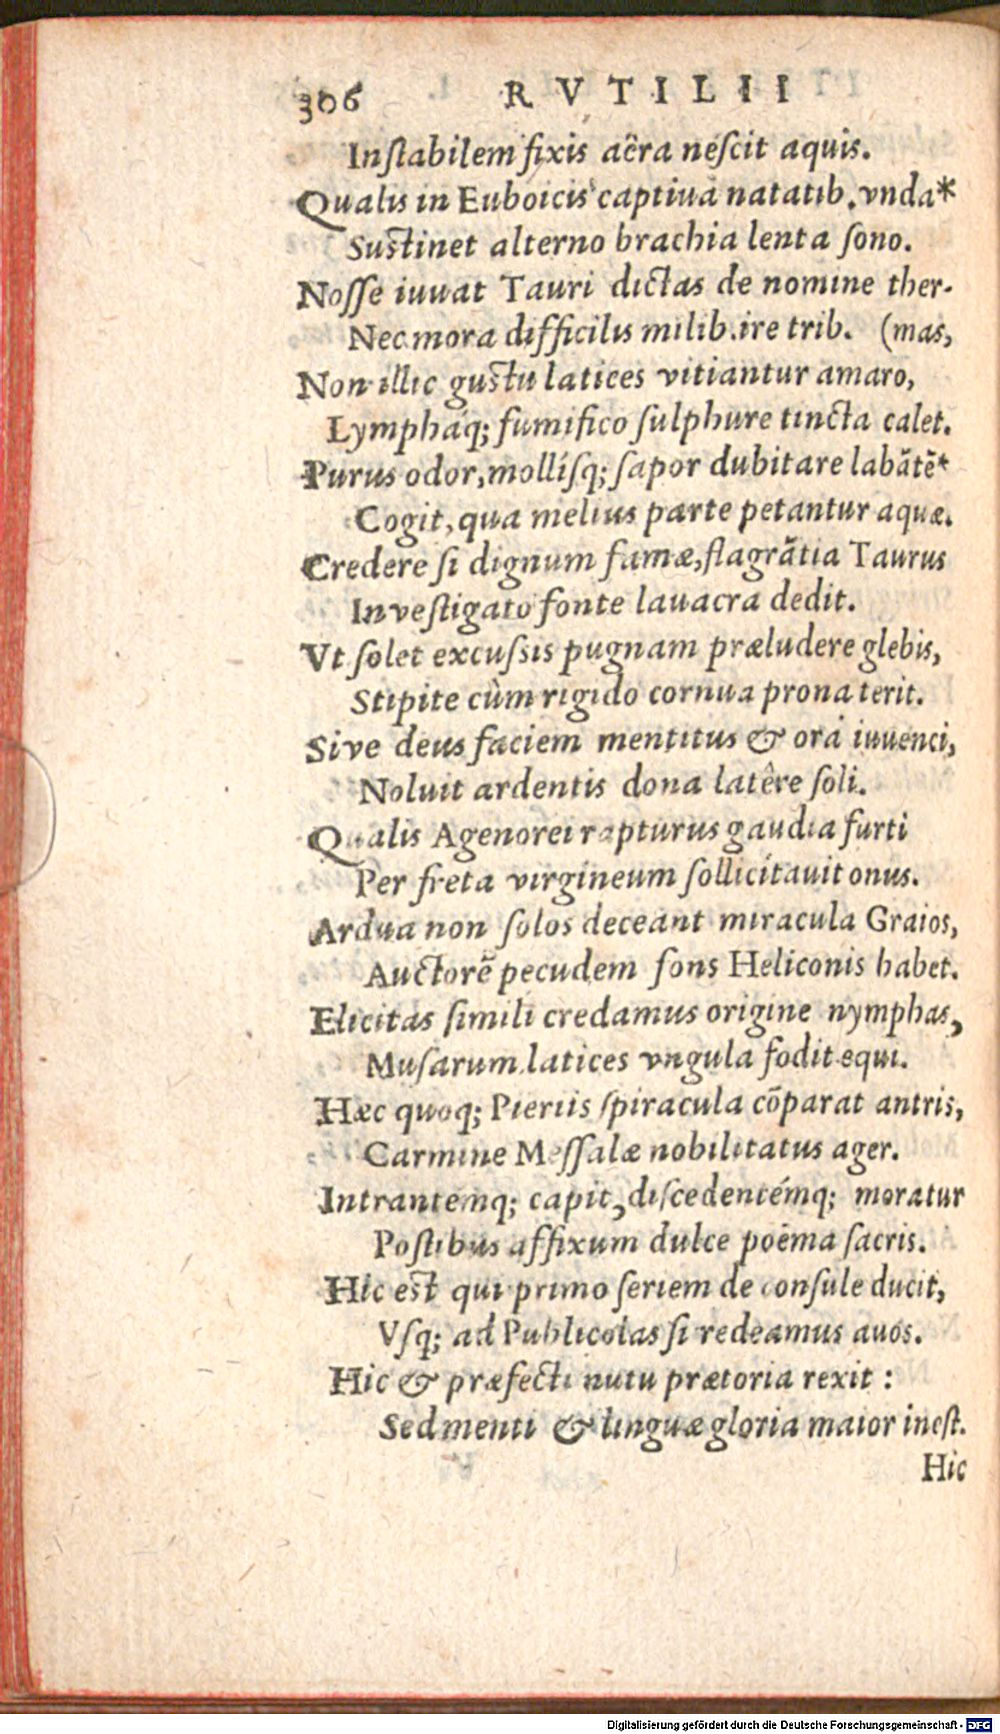 306 RVTILII
Inſtabilem fixis aëra neſcit aquis.
Qualis in Euboicis captiua natatib. vnda*
Suſtinet alterno brachia lenta ſono.
Noſſe iuuat Tauri dictas de nomine ther-
Nec mora difficilis milib. ire trib. (mas,
Non illic guſtu latices vitiantur amaro,
Lymphaq; fumifico ſulphure tincta calet.
Purus odor, molliſq; ſapor dubitare labãtẽ*
Cogit, qua melius parte petantur aquæ.
Credere ſi dignum famæ, flagrãtia Taurus
Inveſtigato fonte lauacra dedit.
Vt ſolet excuſsis pugnam præludere glebis,
Stipite cùm rigido cornua prona terit.
Sive deus faciem mentitus & ora iuuenci,
Noluit ardentis dona latêre ſoli.
Qualis Agenorei rapturus gaudia furti
Per freta virgineum ſollicitauit onus.
Ardua non ſolos deceant miracula Graios,
Auctorẽ pecudem fons Heliconis habet.
Elicitas ſimili credamus origine nymphas,
Muſarum latices vngula fodit equi.
Hæc quoq; Pieriis ſpiracula cõparat antris,
Carmine Meſſalæ nobilitatus ager.
Intrantemq; capit, diſcedentémq; moratur
Poſtibus affixum dulce poëma ſacris.
Hic eſt qui primo ſeriem de conſule ducit,
Vſq; ad Publicolas ſi redeamus auos.
Hic & præfecti nutu prætoria rexit :
Sed menti & linguæ gloria maior ineſt.
Hic
Digitalisierung gefördert durch die Deutsche Forschungsgemeinschaft - DFG